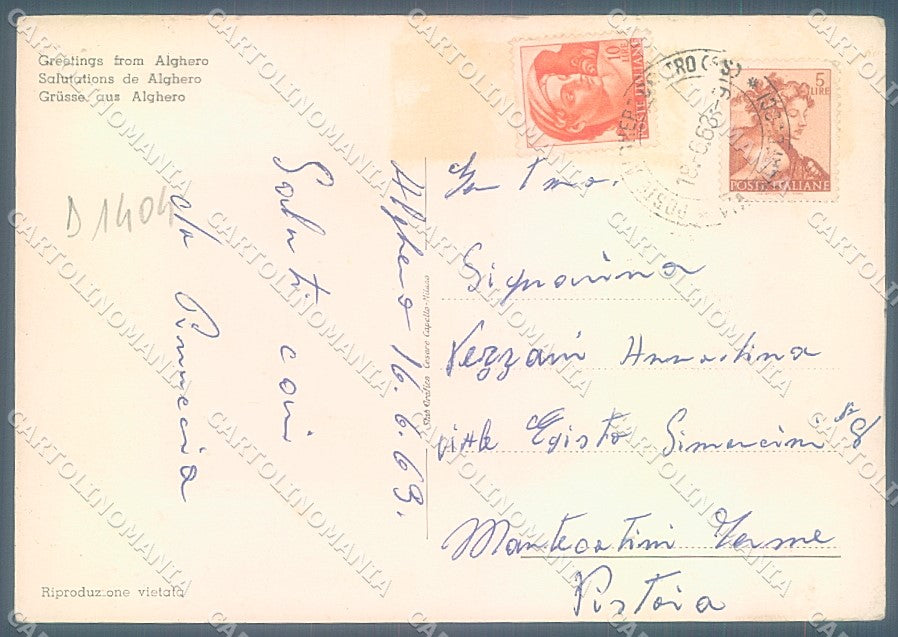 Greetings from Alghero
Salutations de Alghero
Grüsse aus Alghero
D 1404
Alghero 16.6.63.
Saluti cari
da Pinuccia
Stab. Grafico Cesare Capello-Milano
10 LIRE
POSTE ITALIANE
5 LIRE
POSTE ITALIANE
18.6.63
Signorina
Vezzani Annalina
viale Egisto Simoncini N 8
Montecatini Terme
Pistoia
Riproduzione vietata
CARTOLINOMANIA